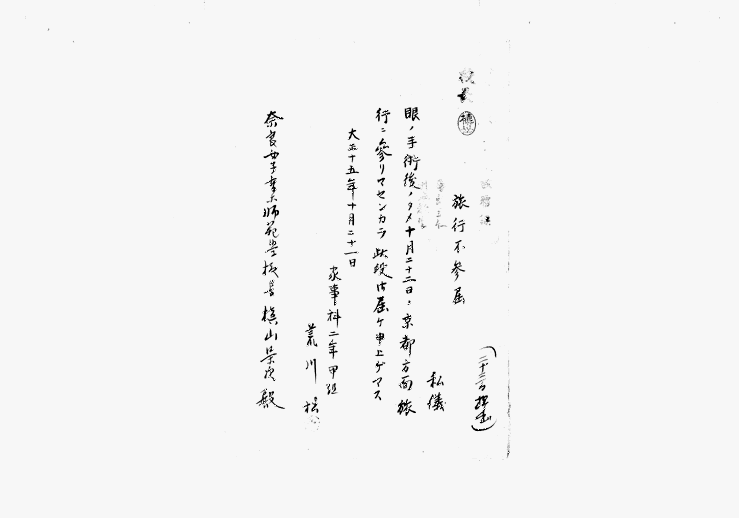 校長
旅行不参届
(二十三日提出)
私儀
眼ノ手術後ノタメ十月二十二日ニ京都方面旅
行ニ參リマセンカラ此段御届ケ申上ゲマス
大正十五年十月二十一日
家事科二年甲組
荒川
奈良女子高等師範學校長 槇山榮次殿